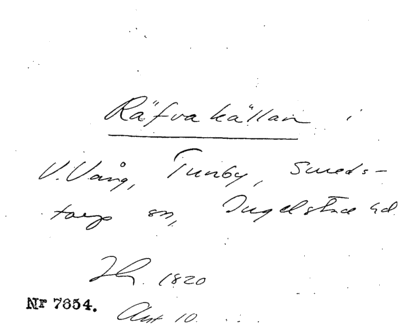 Räfvakällan i
V. Vång, Tunby, Smeds-
torp sn, Ingelstad hd.
1820
Nr 7854.
Ant 10.